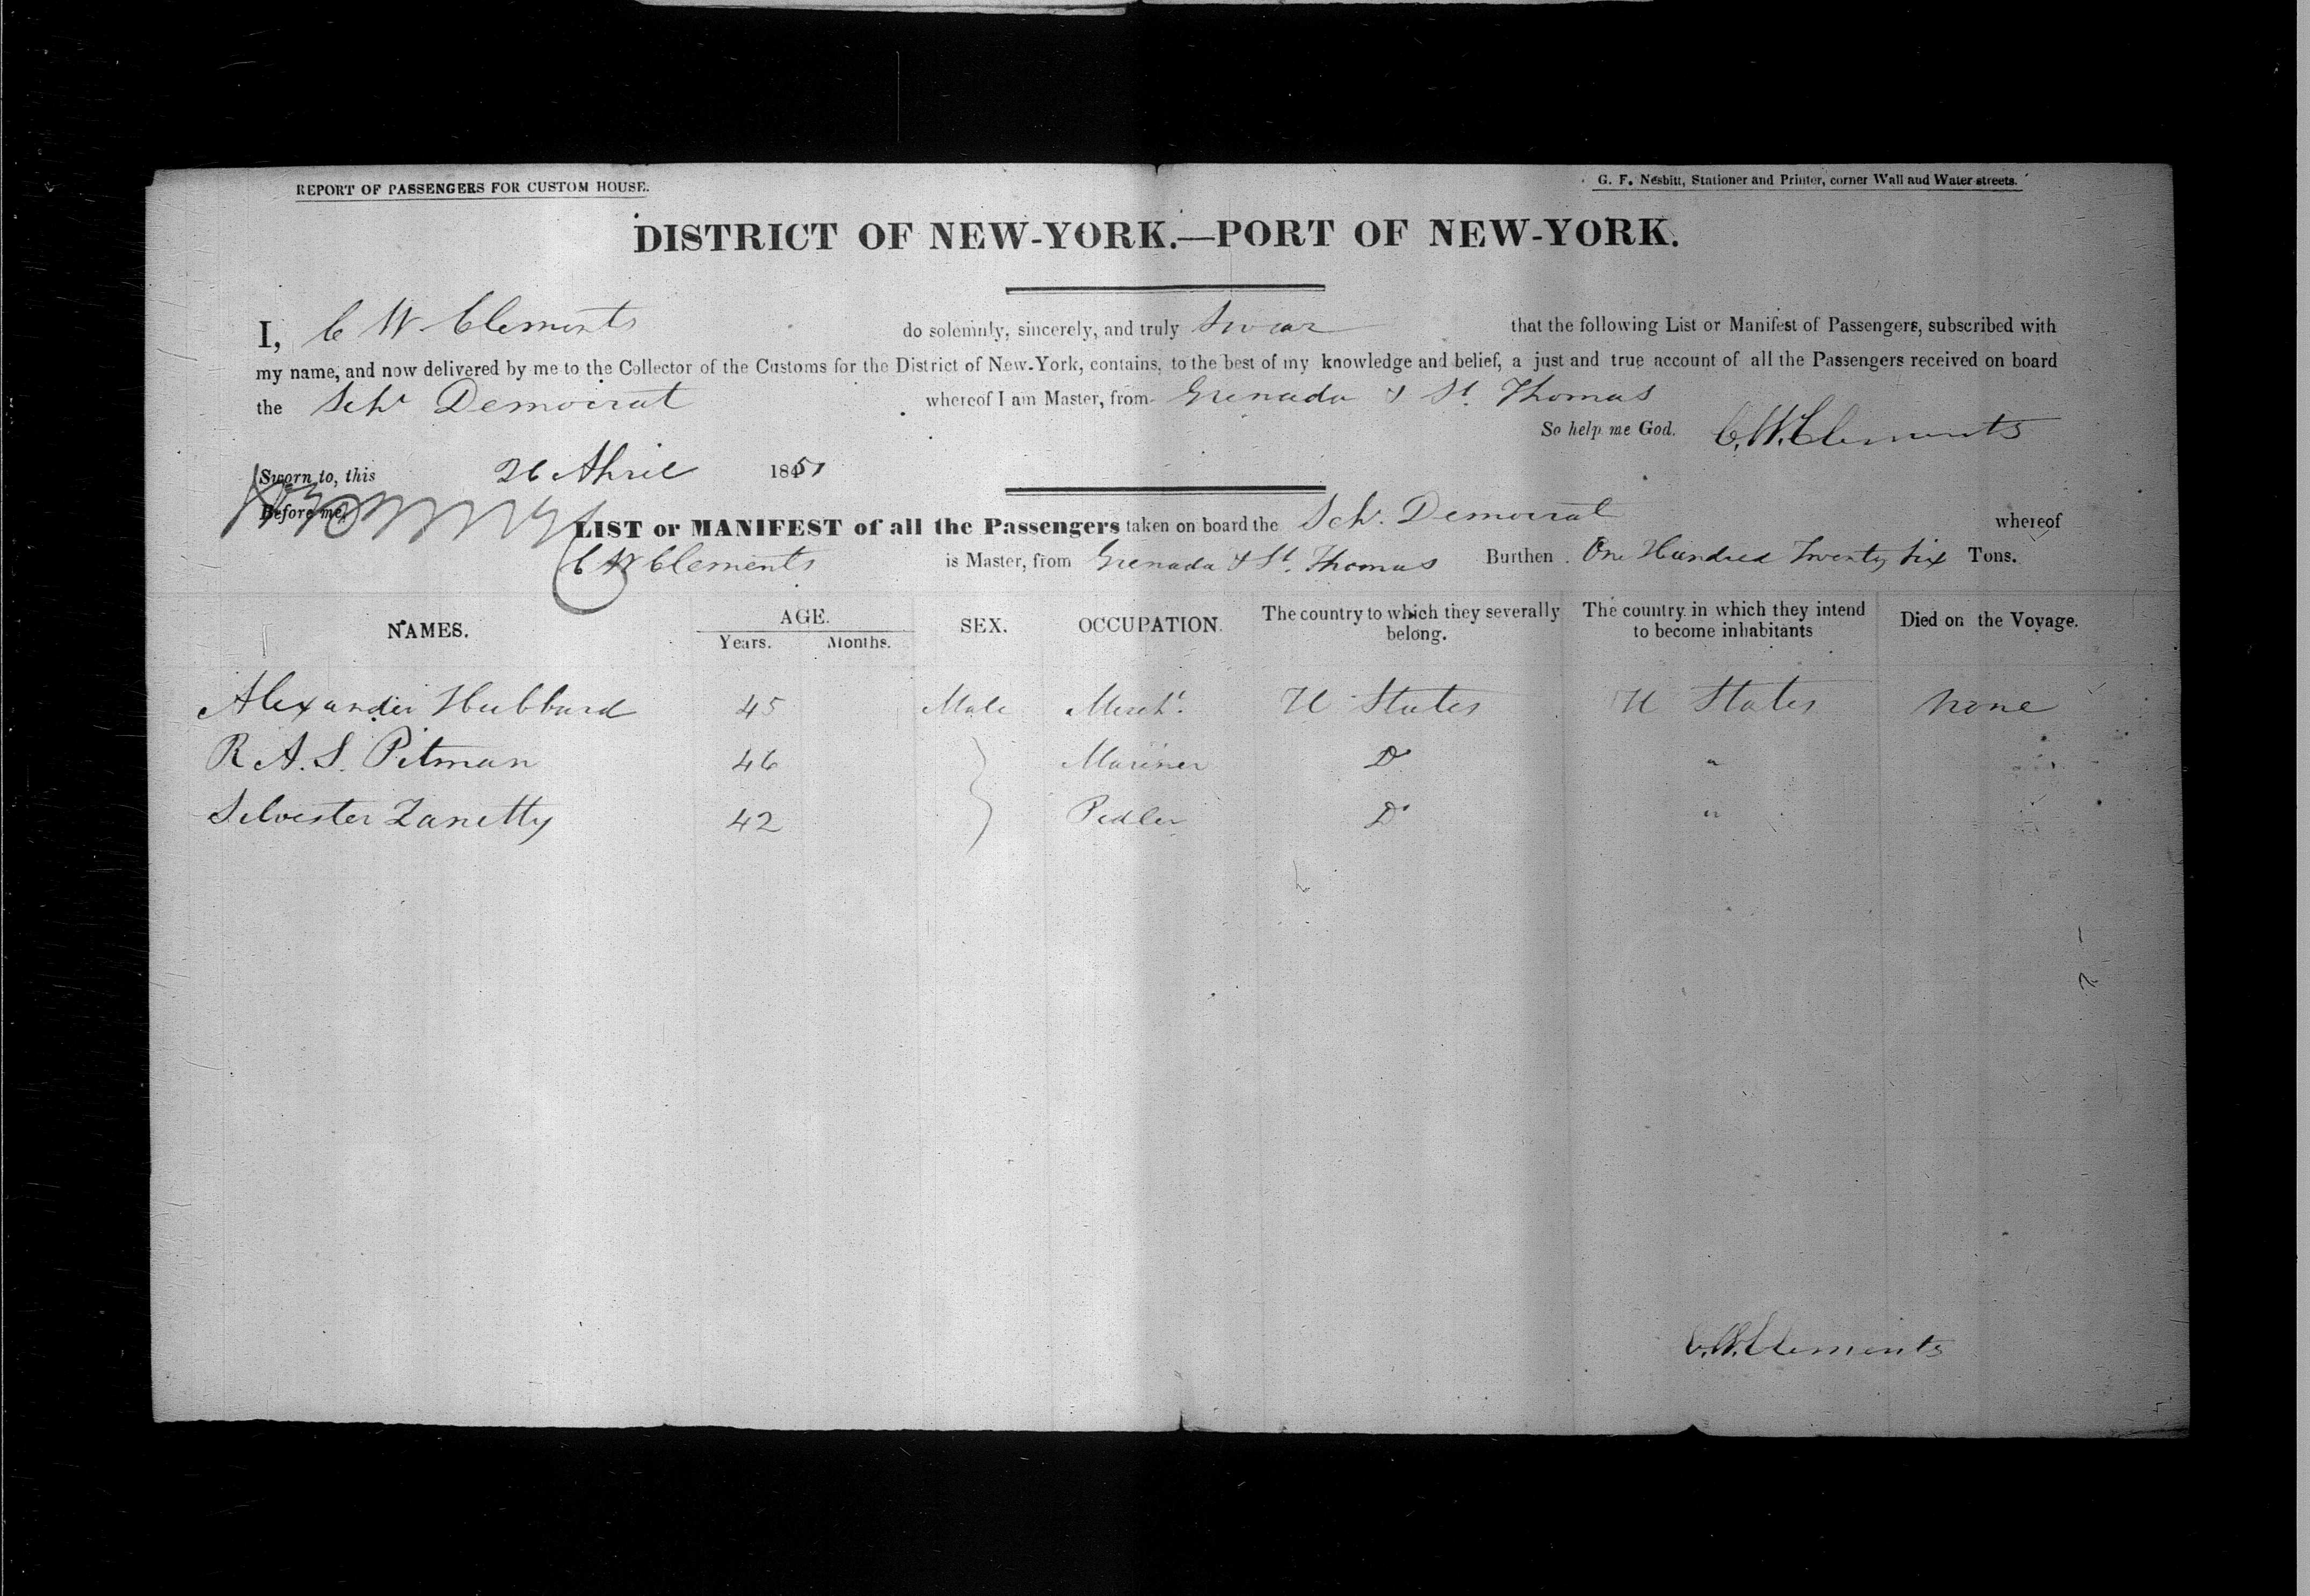 REPORT OF PASSENGERS FOR CUSTOM HOUSE.
G. F. Nesbitt, Stationer and Printer, corner Wall and Water streets.
DISTRICT OF NEW-YORK.—PORT OF NEW-YORK.
I, C W Clements do solemnly, sincerely, and truly Swear that the following List or Manifest of Passengers, subscribed with
my name, and now delivered by me to the Collector of the Customs for the District of New-York, contains, to the best of my knowledge and belief, a just and true account of all the Passengers received on board
the Schr Democrat whereof I am Master, from Grenada & St. Thomas
So help me God. C. W. Clements
Sworn to, this 26 April 1851
Before me,
LIST or MANIFEST of all the Passengers taken on board the Schr. Democrat whereof
C W Clements is Master, from Grenada & St. Thomas Burthen One Hundred Twenty Six Tons.
NAMES. AGE. SEX. OCCUPATION. The country to which they severally belong. The country in which they intend to become inhabitants Died on the Voyage.
Years. Months.
Alexander Hubbard 45 Male Mercht. U States U States none
R. A. S. Pitman 46 Mariner Do "
Silvester Zanetty 42 Pedler Do "
C. W. Clements